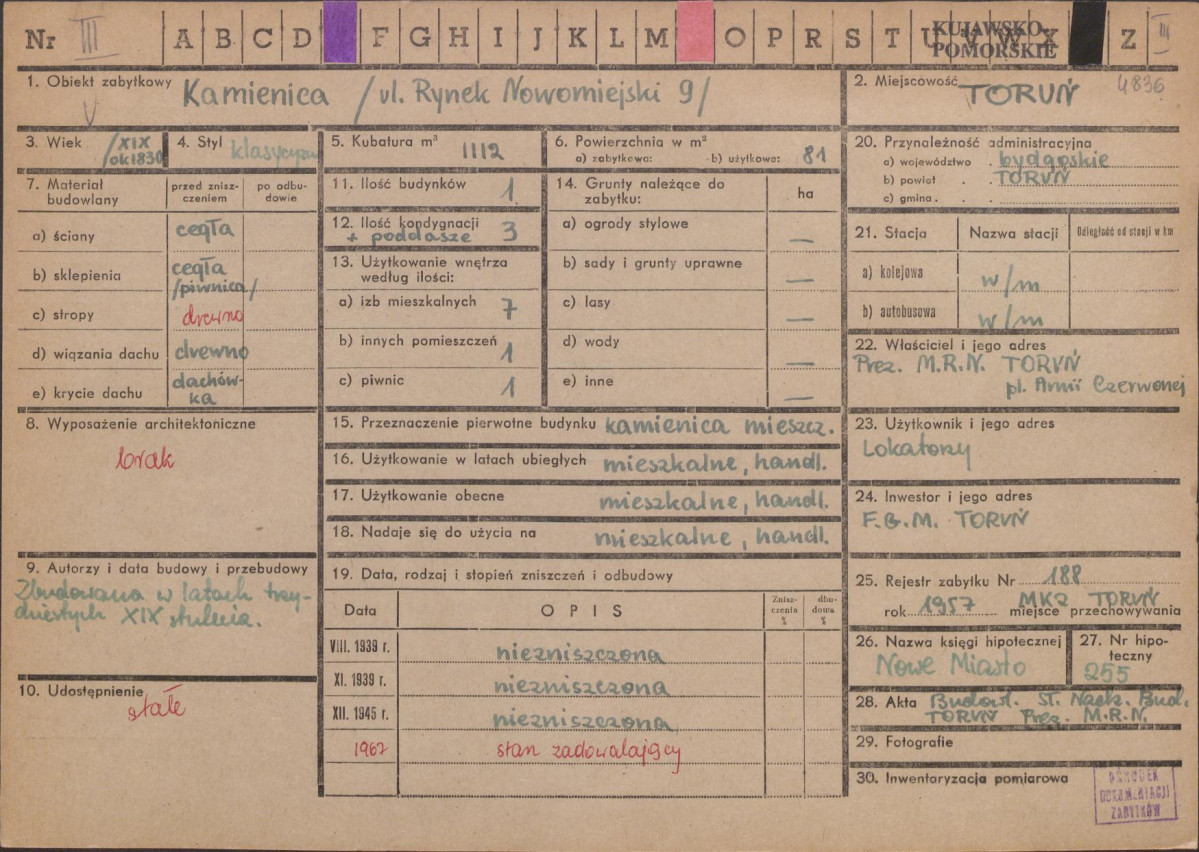 Nr III A B C D F G H I J K L M O P R S T U V W X Z III
KUJAWSKO-
POMORSKIE
1. Obiekt zabytkowy Kamienica /ul. Rynek Nowomiejski 9/
2. Miejscowość TORUŃ 4836
3. Wiek /XIX
ok 1830
4. Styl klasycyzm
5. Kubatura m³ 1112
6. Powierzchnia w m²
a) zabytkowa: b) użytkowa: 81
7. Materiał
budowlany
przed znisz-
czeniem
po odbu-
dowie
a) ściany cegła
b) sklepienia cegła
/piwnica/
c) stropy drewno
d) wiązania dachu drewno
e) krycie dachu dachów-
ka
8. Wyposażenie architektoniczne
brak
9. Autorzy i data budowy i przebudowy
Zbudowana w latach trzy-
dziestych XIX stulecia.
10. Udostępnienie
stałe
11. Ilość budynków 1
12. Ilość kondygnacji
+ poddasze 3
13. Użytkowanie wnętrza
według ilości:
a) izb mieszkalnych 7
b) innych pomieszczeń 1
c) piwnic 1
14. Grunty należące do
zabytku:
ha
a) ogrody stylowe —
b) sady i grunty uprawne —
c) lasy —
d) wody —
e) inne —
15. Przeznaczenie pierwotne budynku kamienica mieszcz.
16. Użytkowanie w latach ubiegłych mieszkalne, handl.
17. Użytkowanie obecne mieszkalne, handl.
18. Nadaje się do użycia na mieszkalne, handl.
19. Data, rodzaj i stopień zniszczeń i odbudowy
Data OPIS
Znisz-
czenia
%
dbu-
dowa
%
VIII. 1939 r. niezniszczona
XI. 1939 r. niezniszczona
XII. 1945 r. niezniszczona
1967 stan zadowalający
20. Przynależność administracyjna
a) województwo . bydgoskie
b) powiat . . TORUŃ
c) gmina . . .
21. Stacja Nazwa stacji Odległość od stacji w km
a) kolejowa w/m
b) autobusowa w/m
22. Właściciel i jego adres
Prez. M.R.N. TORUŃ
pl. Armii Czerwonej
23. Użytkownik i jego adres
Lokatorzy
24. Inwestor i jego adres
F.G.M. TORUŃ
25. Rejestr zabytku Nr 188
rok 1957 MKZ TORUŃ
miejsce przechowywania
26. Nazwa księgi hipotecznej
Nowe Miasto
27. Nr hipo-
teczny
255
28. Akta Budowl. St. Nadz. Bud.
TORUŃ Prez. M.R.N.
29. Fotografie
30. Inwentaryzacja pomiarowa
OŚRODEK
DOKUMENTACJI
ZABYTKÓW